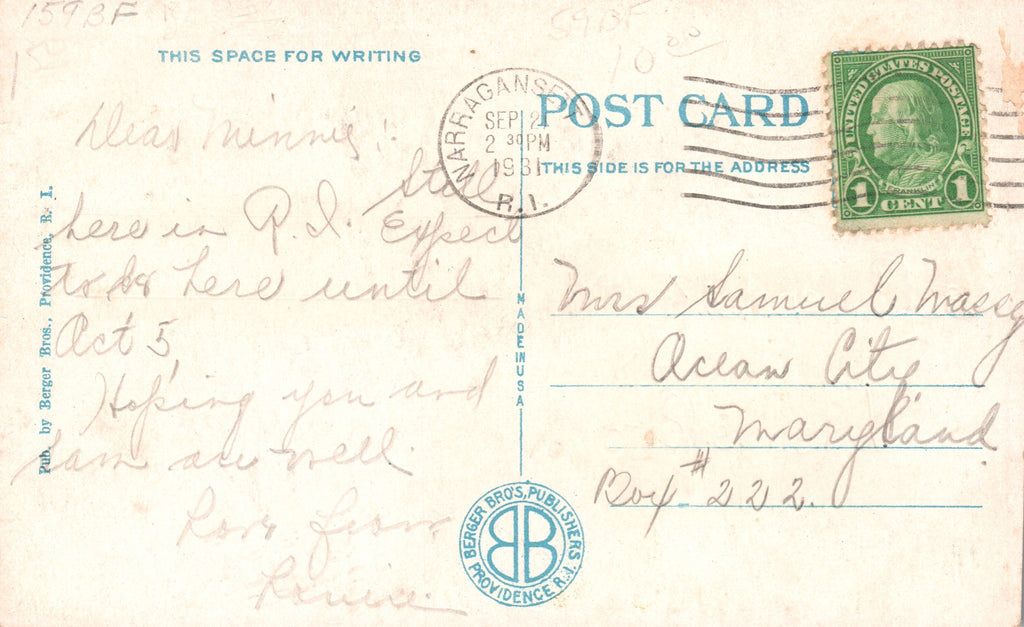 159BF
59BF
10 00
THIS SPACE FOR WRITING
NARRAGANSETT
SEP 2
2 30 PM
1931
R.I.
POST CARD
THIS SIDE IS FOR THE ADDRESS
UNITED STATES POSTAGE
FRANKLIN
1 CENT 1
Dear Minnie:
Still
here in R.I. Expect
to be here until
Oct 5,
Hoping you and
Sam are well.
Love from
Mrs Samuel Massey
Ocean City
Maryland
Box #222.
Pub. by Berger Bros., Providence, R. I.
MADE IN USA
BERGER BRO'S, PUBLISHERS
BB
PROVIDENCE R.I.